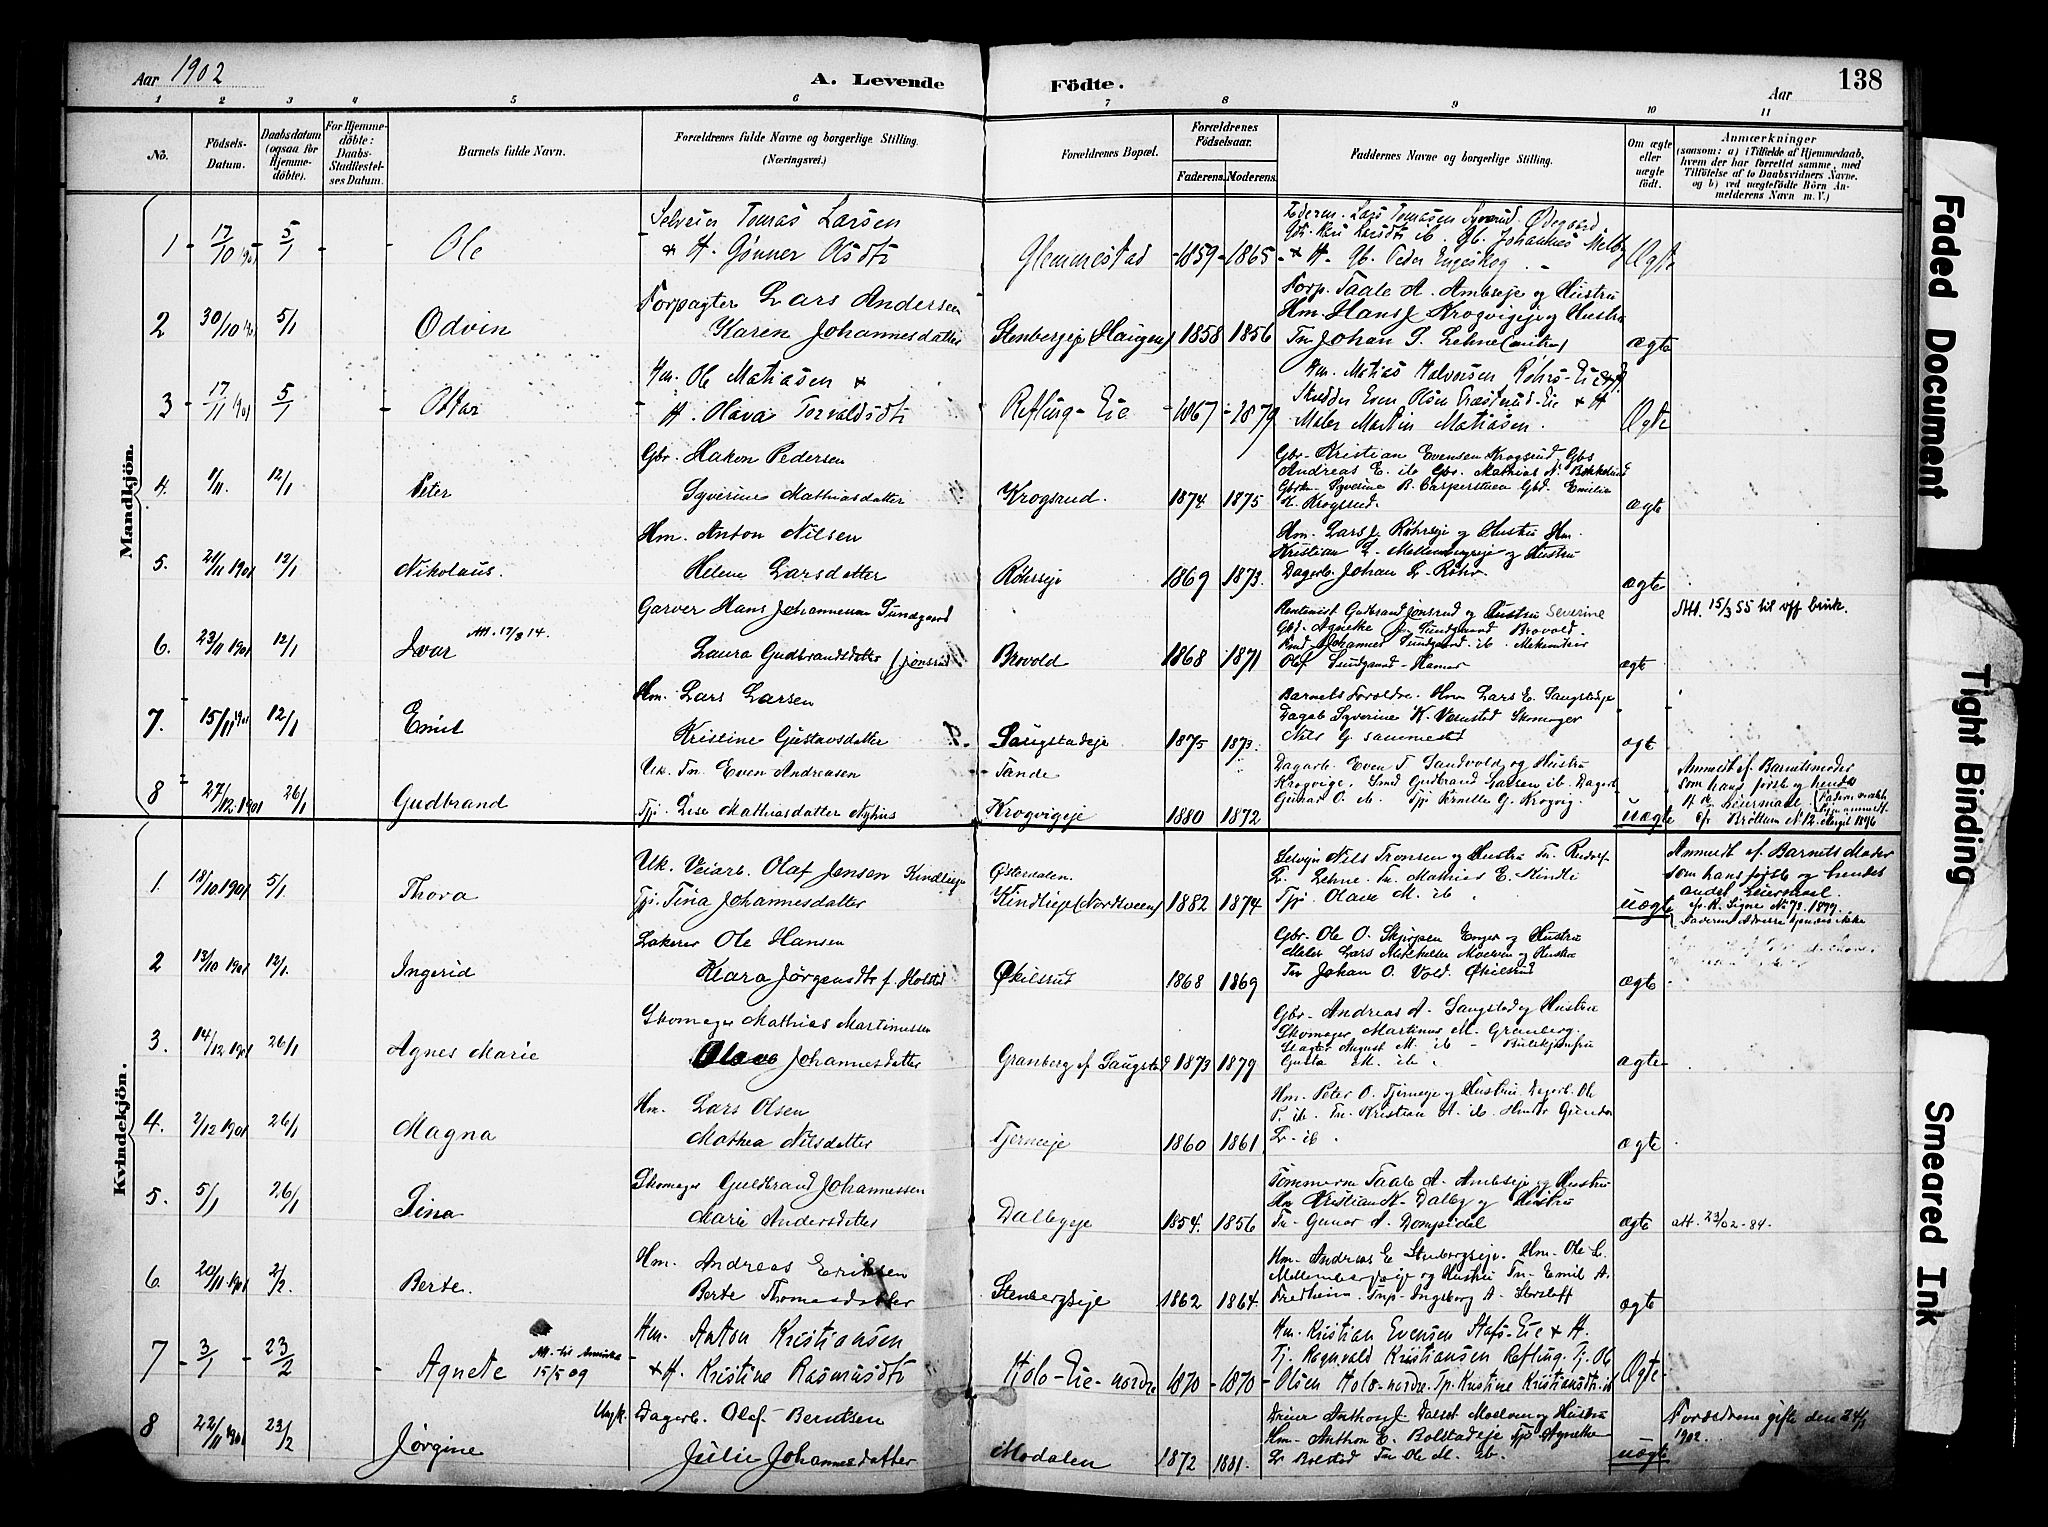 Aar 1902
A. Levende Födte.
Aar
138
1 2 3 4 5 6 7 8 9 10 11
No.
Födsels-Datum.
Daabsdatum (ogsaa for Hjemme-döbte).
For Hjemme-döbte: Daabs-Stadfæstel-ses Datum.
Barnets fulde Navn.
Forældrenes fulde Navne og borgerlige Stilling.
(Næringsvei.)
Forældrenes Bopæl.
Forældrenes Födselsaar.
Faderens. Moderens.
Faddernes Navne og borgerlige Stilling.
Om ægte eller uægte födt.
Anmærkninger
(saasom: a) i Tilfælde af Hjemmedaab,
hvem der har forrettet samme, med
Tilföielse af to Daabsvidners Navne.
og b) ved uægtefödte Börn An-
melderens Navn m. V.)
Mandkjön.
1 17/10 1901 5/1 Ole
Tomas Larsen
& H. Gunner Olsdtr
Glemmestad 1859 1865
Lars Tomasen Ødegaard
Gb. Johannes Melby
& H. Gb. Peder Engeskog
Ægte
2 30/10 5/1 Odvin
Forpagter Lars Andersen
Karen Johannesdatter
Stenbergeje (Haugen) 1858 1856
Forp. Taale A. Ambseje og Hustru
Hm. Hans J. Krogvigeje og Hustru
Tn. Johan S. Lehne
ægte
3 17/11 1901 5/1 Ottar
Hm. Ole Matiasen &
H. Olava Torvaldsdtr
Refling-Eie 1867 1879
Hm. Matias Halvorsen Röhrs-Eie
Skrædder Even Olsen & H
Maler Martin Matiasen.
Ægte
4. 1/11. 12/1 Peter
Gbr. Hakon Pedersen
Syverine Mathiasdatter
Krogsrud. 1874 1875
Gbr. Kristian Evensen Krogsrud, Gbs
Andreas E. ib Gbr. Mathias N. Bekkelund
Syverine B. Casperstuen Gbd. Emilie
K. Krogsrud.
ægte
5. 21/11 1901 12/1 Nikolaus.
Hm. Anton Nilsen
Helene Larsdatter
Röhrseje 1869 1873.
Hm. Lars J. Röhrseje og Hustru Hm.
Kristian L. Mellembergeje og Hustru
Dagerb. Johan L. Röhr
ægte
6. 23/11 1901 12/1 Ivar Att. 17/3 14.
Garver Hans Johannesen Sundgaard
Laura Gudbrandsdatter (Jonsrud)
Brovold 1868 1871
Rentenist Gudbrand Jonsrud og Hustru Severine
Gbd. Agnethe Sundgaard Brovold.
Johannes Sundgaard ib.
Olaf Sundgaard Hamar
ægte
Att. 15/3 55 til off bruk.
7. 15/11 1901 12/1 Emil
Hm. Lars Larsen
Kristine Gustavsdatter
Saugstadeje 1875 1873.
Barnets Foreldre. Hm Lars E. Saugstadeje
Dagab Syverine K. Skomager
Nils G.
ægte
8 27/12 1901 26/1 Gudbrand
Uk. Tn. Even Andreasen
Tpi. Lise Mathiasdatter Nyhus
Tande
Krogvigeje 1880 1872
Dagarb. Even T. Sandvold og Hustru
Krogvige, Smd Gudbrand Larsen ib. Dagarb
Gunar O. ib. Tpi Pernille G. Krogvig
uægte
Anmeldt af Barnets moder
som hans første og hendes
Brøttum N 12
Kvindekjön.
1. 18/10 1901 5/1. Thora
Uk. Veiarb. Olaf Jensen Kindlieje
Tpi. Tina Johannesdatter
Østerdalen.
Kindlieje (Nordsveen) 1882 1874
Selvejer Nils Tronsen og Hustru Tn. Rudolf
L. Lehne. Tn. Mathias E. Kindli
Tpi Olave M. ib.
uægte
Anmeldt af Barnets Moder
som hans første og hendes
andet Leiermaal.
Signe No 73. 1899.
2 13/10 1901 12/1. Ingerid
Bakerer Ole Hansen
Klara Jørgensdtr f. Holstad
Økilsrud 1868 1869
Gbr. Ole O. Skjøpen og Hustru
Maler Lars Mikkelsen Moelven og Hustru
Tn Johan O. Vold. Økilsrud
ægte
3. 14/12 1901 26/1 Agnes Marie
Skomager Mathias Martinussen
Olave Johannesdatter
Granberg af Saugstad 1873 1879
Gbr. Andreas A. Saugstad og Hustru
Skomager Martinus M. Granberg.
Slagter August M. ib
Gusta M. ib.
ægte
4. 2/12 1901 26/1 Magna
Hm. Lars Olsen
Mathea Nilsdatter
Tjerneje 1860 1861
Hm. Peter O. Tjerneje og Hustru Dagerb. Ole
P. ib. Tn. Kristian A. ib.
L. ib.
ægte
5. 5/1 26/1 Sina
Skomager Guldbrand Johannessen
Marie Andersdatter
Dalbyeje 1854. 1856
Tömmerm Taale A. Ambseje og Hustru
Hm Kristian N. Dalby og Hustru
Tn. Gunar A. Dompidal
ægte
att. 23/02-84.
6. 20/11 1901 2/2. Berte.
Hm. Andreas Eriksen
Berte Thomasdatter
Stenbergseje 1862 1864.
Hm. Andreas E. Stenbergseje. Hm. Ole L.
Mellembergseje og Hustru Tn. Emil A.
Fredheim. Ingeborg A. Storsloft
ægte
7 3/1 23/2 Agnete Att. til Amerika 15/5 09
Hm. Anton Kristiansen
& H. Kristine Rasmusdtr
Holo-Eie-nordre 1870 1870
Hm. Kristian Evensen Stafs-Eie & H.
Tj. Ragnvald Kristiansen Refling. Tj. Ole
Olsen Holo-nordre. Tp. Kristine Kristiansdtr. ib
Ægte
8 22/11 1901 23/2 Jørgine
Ungk. Dagerb. Olaf Berntsen
Julie Johannesdatter
Modalen 1872 1881.
Anthon J. Dalset Moelven og Hustru
Hm. Anthon E. Bolstadeje Tpi Agnethe
L. Bolstad Tn Ole M. ib.
uægte
Forældrene gifte den 24/1
1902.
Faded Document
Tight Binding
Smeared Ink